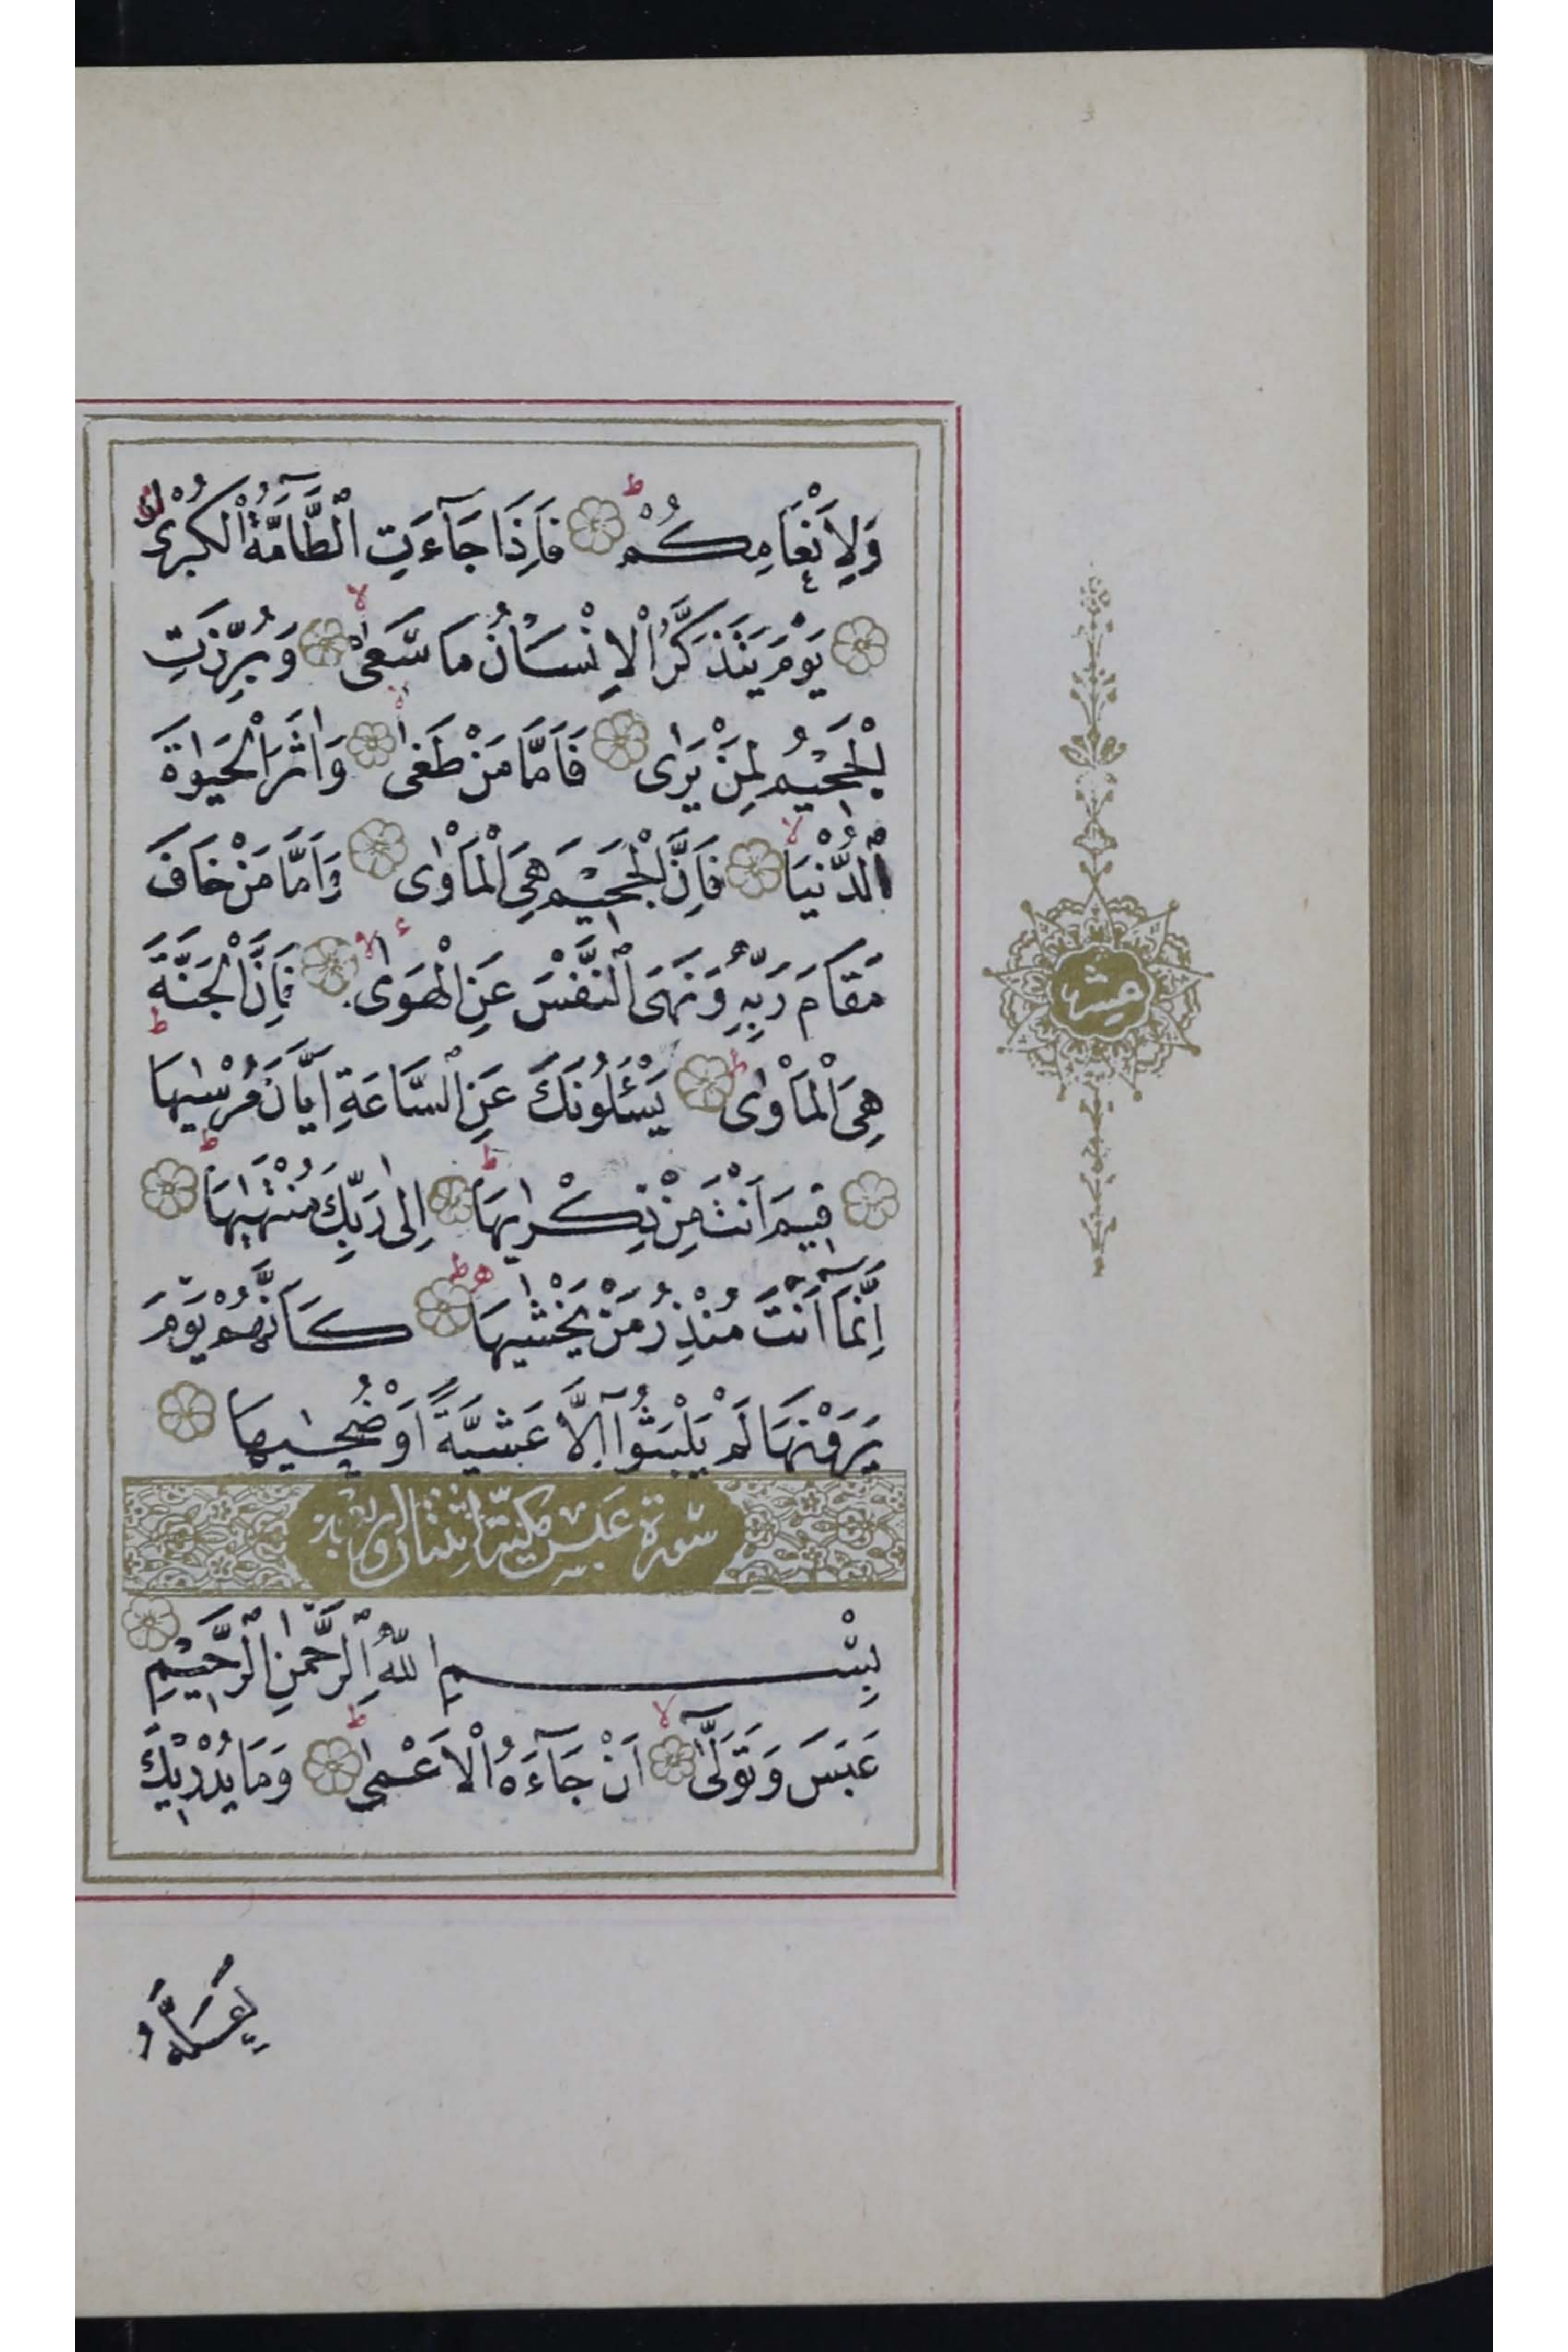 وَلِاَنْعَامِكُمْ فَاِذَا جَآءَتِ الطَّآمَّةُ الْكُبْرٰى
يَوْمَ يَتَذَكَّرُ الْاِنْسَانُ مَا سَعٰى وَبُرِّزَتِ
الْجَحِيْمُ لِمَنْ يَرٰى فَاَمَّا مَنْ طَغٰى وَاٰثَرَ الْحَيٰوةَ
الدُّنْيَا فَاِنَّ الْجَحِيْمَ هِيَ الْمَاْوٰى وَاَمَّا مَنْ خَافَ
مَقَامَ رَبِّهٖ وَنَهَى النَّفْسَ عَنِ الْهَوٰى فَاِنَّ الْجَنَّةَ
هِيَ الْمَاْوٰى يَسْئَلُونَكَ عَنِ السَّاعَةِ اَيَّانَ مُرْسٰيهَا
فِيمَ اَنْتَ مِنْ ذِكْرٰيهَا اِلٰى رَبِّكَ مُنْتَهٰيهَا
اِنَّمَآ اَنْتَ مُنْذِرُ مَنْ يَخْشٰيهَا كَاَنَّهُمْ يَوْمَ
يَرَوْنَهَا لَمْ يَلْبَثُوٓا اِلَّا عَشِيَّةً اَوْ ضُحٰيهَا
سورة عَبَسَ مكيّة اثنتان واربعون
بِسْمِ اللّٰهِ الرَّحْمٰنِ الرَّحِيْمِ
عَبَسَ وَتَوَلّٰىٓ اَنْ جَآءَهُ الْاَعْمٰى وَمَا يُدْرِيْكَ
لَعَلَّهُ
عشر